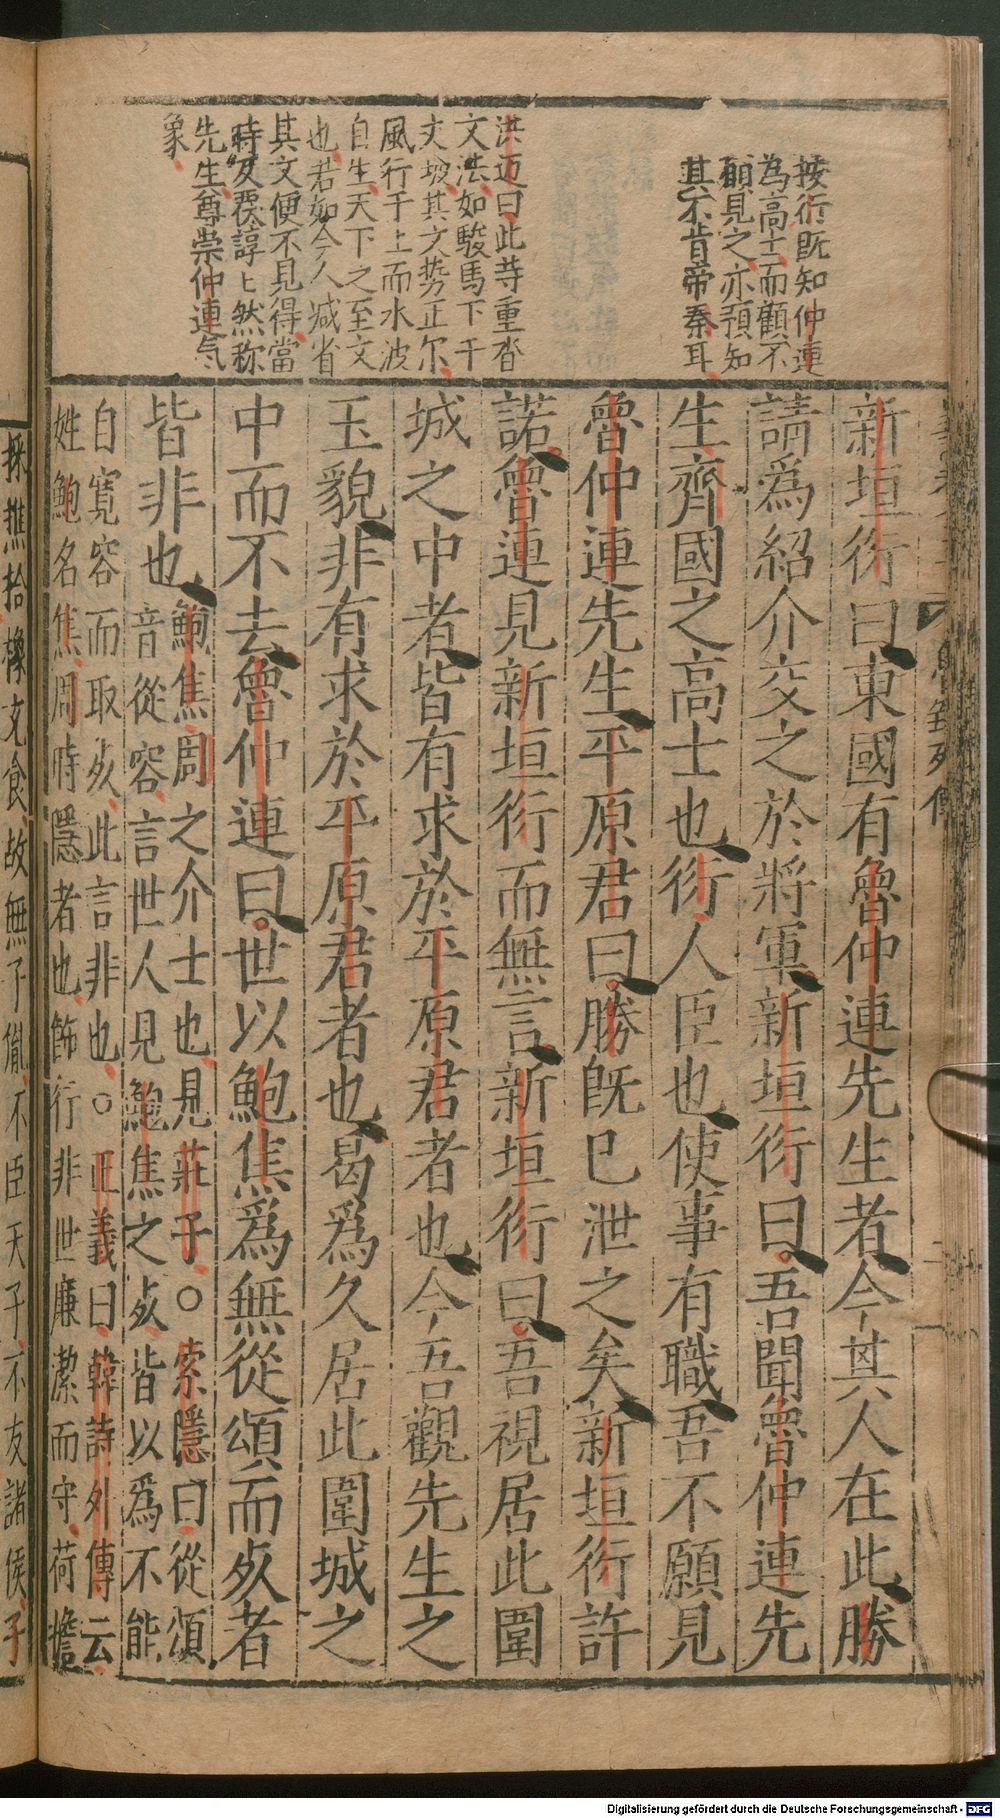 按衍既知仲連
為高士而顧不
願見之亦預知
其不肯帝秦耳
洪迈曰此等重沓
文法如駿馬下千
丈坡其文势正尔
風行于上而水波
自生天下之至文
也若如今人减省
其文便不見得當
時反覆諄〻然称
先生尊崇仲連气
象
新垣衍曰東國有魯仲連先生者今其人在此勝
請爲紹介交之於將軍新垣衍曰吾聞魯仲連先
生齊國之高士也衍人臣也使事有職吾不願見
魯仲連先生平原君曰勝旣已泄之矣新垣衍許
諾魯連見新垣衍而無言新垣衍曰吾視居此圍
城之中者皆有求於平原君者也今吾觀先生之
玉貌非有求於平原君者也曷爲久居此圍城之
中而不去魯仲連曰世以鮑焦爲無從頌而死者
皆非也
鮑焦周之介士也見莊子○索隱曰從頌
音從容言世人見鮑焦之死皆以爲不能
自寬容而取死此言非也○正義曰韓詩外傳云
姓鮑名焦周時隱者也飾行非世廉潔而守荷擔
採樵拾橡充食故無子胤不臣天子不友諸侯子
Digitalisierung gefördert durch die Deutsche Forschungsgemeinschaft - DFG